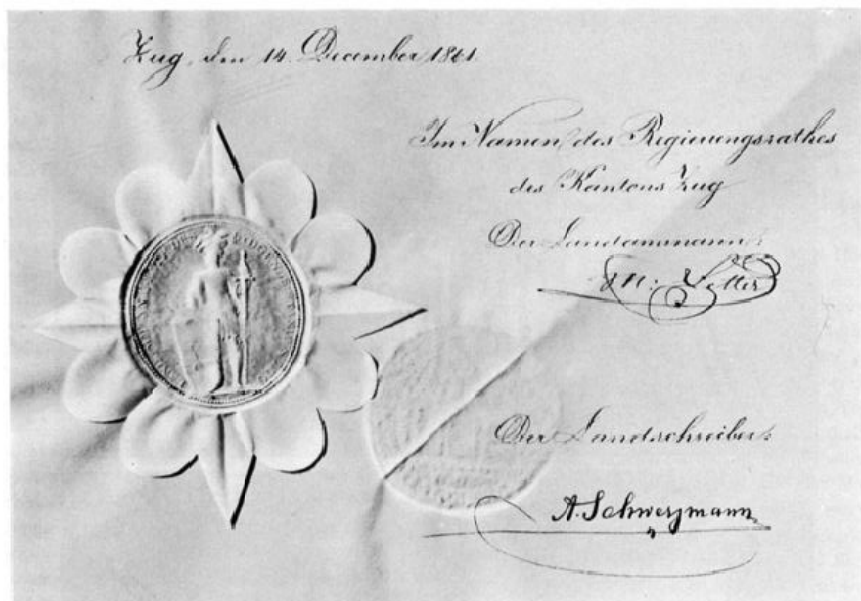 Zug, den 14. December 1861.
Im Namen des Regierungsrathes
des Kantons Zug
Der Landammann:
Letter
Der Landschreiber:
A. Schwerzmann